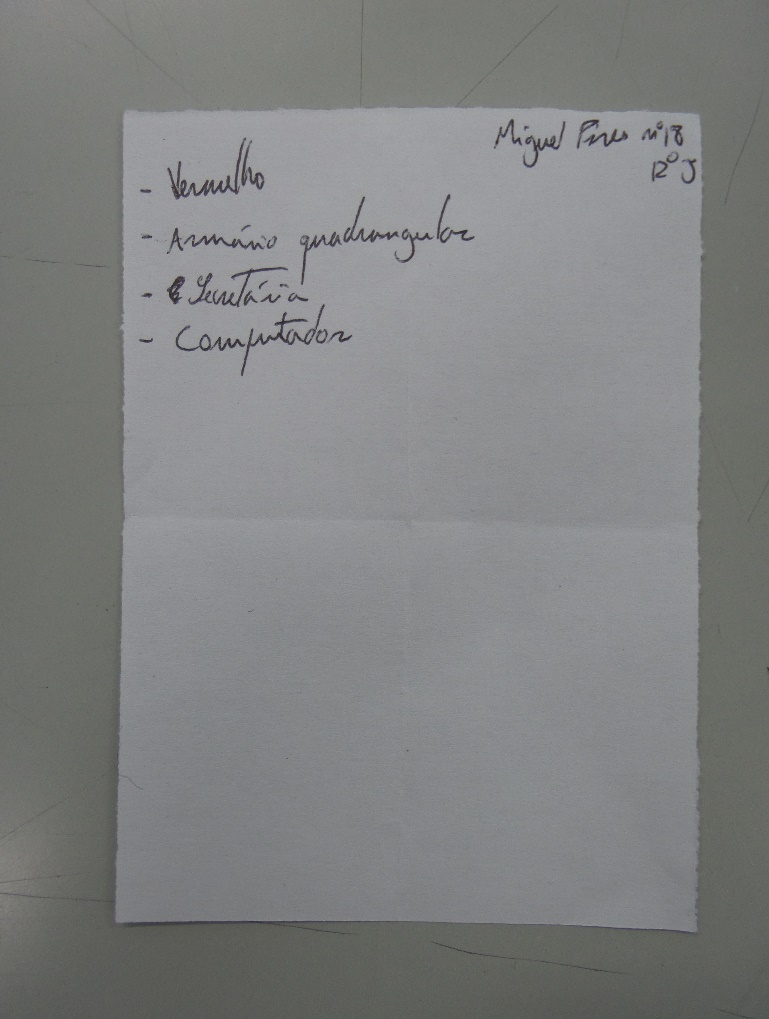 Miguel Pires nº18
12º J
- Vermelho
- Armário quadrangular
- Secretária
- Computador